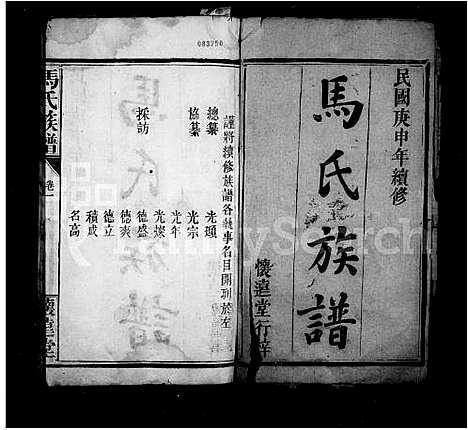 民國庚申年續修
馬氏族譜
懷堂行梓
083750
謹將續修族譜各執事名目開列於左
總纂 光
協纂 光宗
光年
光燦
採訪 德盛
德爽
德立
積成
名高
馬氏族譜 卷一 懷堂
FamilySearch